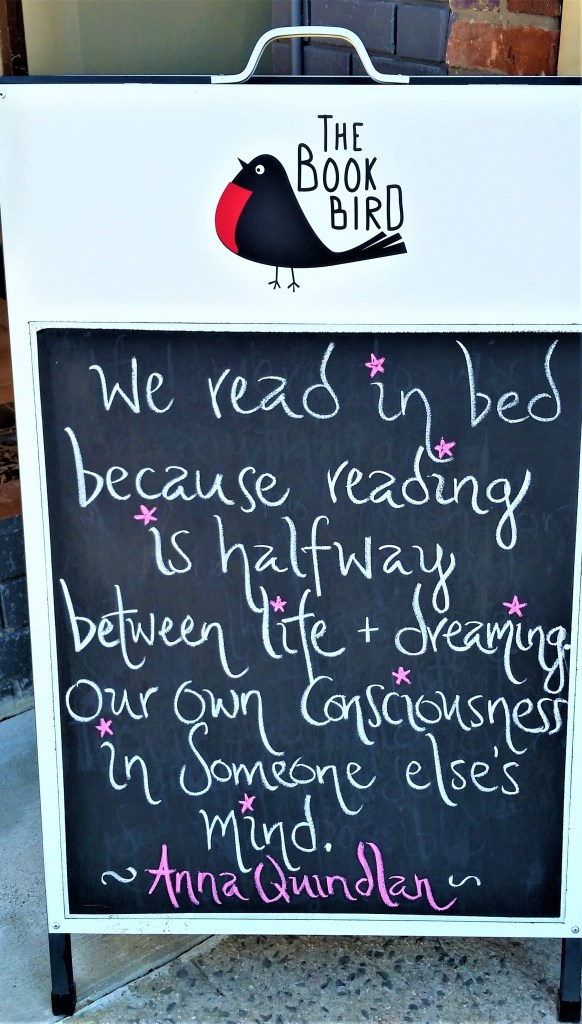 THE
BOOK
BIRD
We read in bed
because reading
is halfway
between life + dreaming.
our own consciousness
in someone else's
mind.
~ Anna Quindlan ~